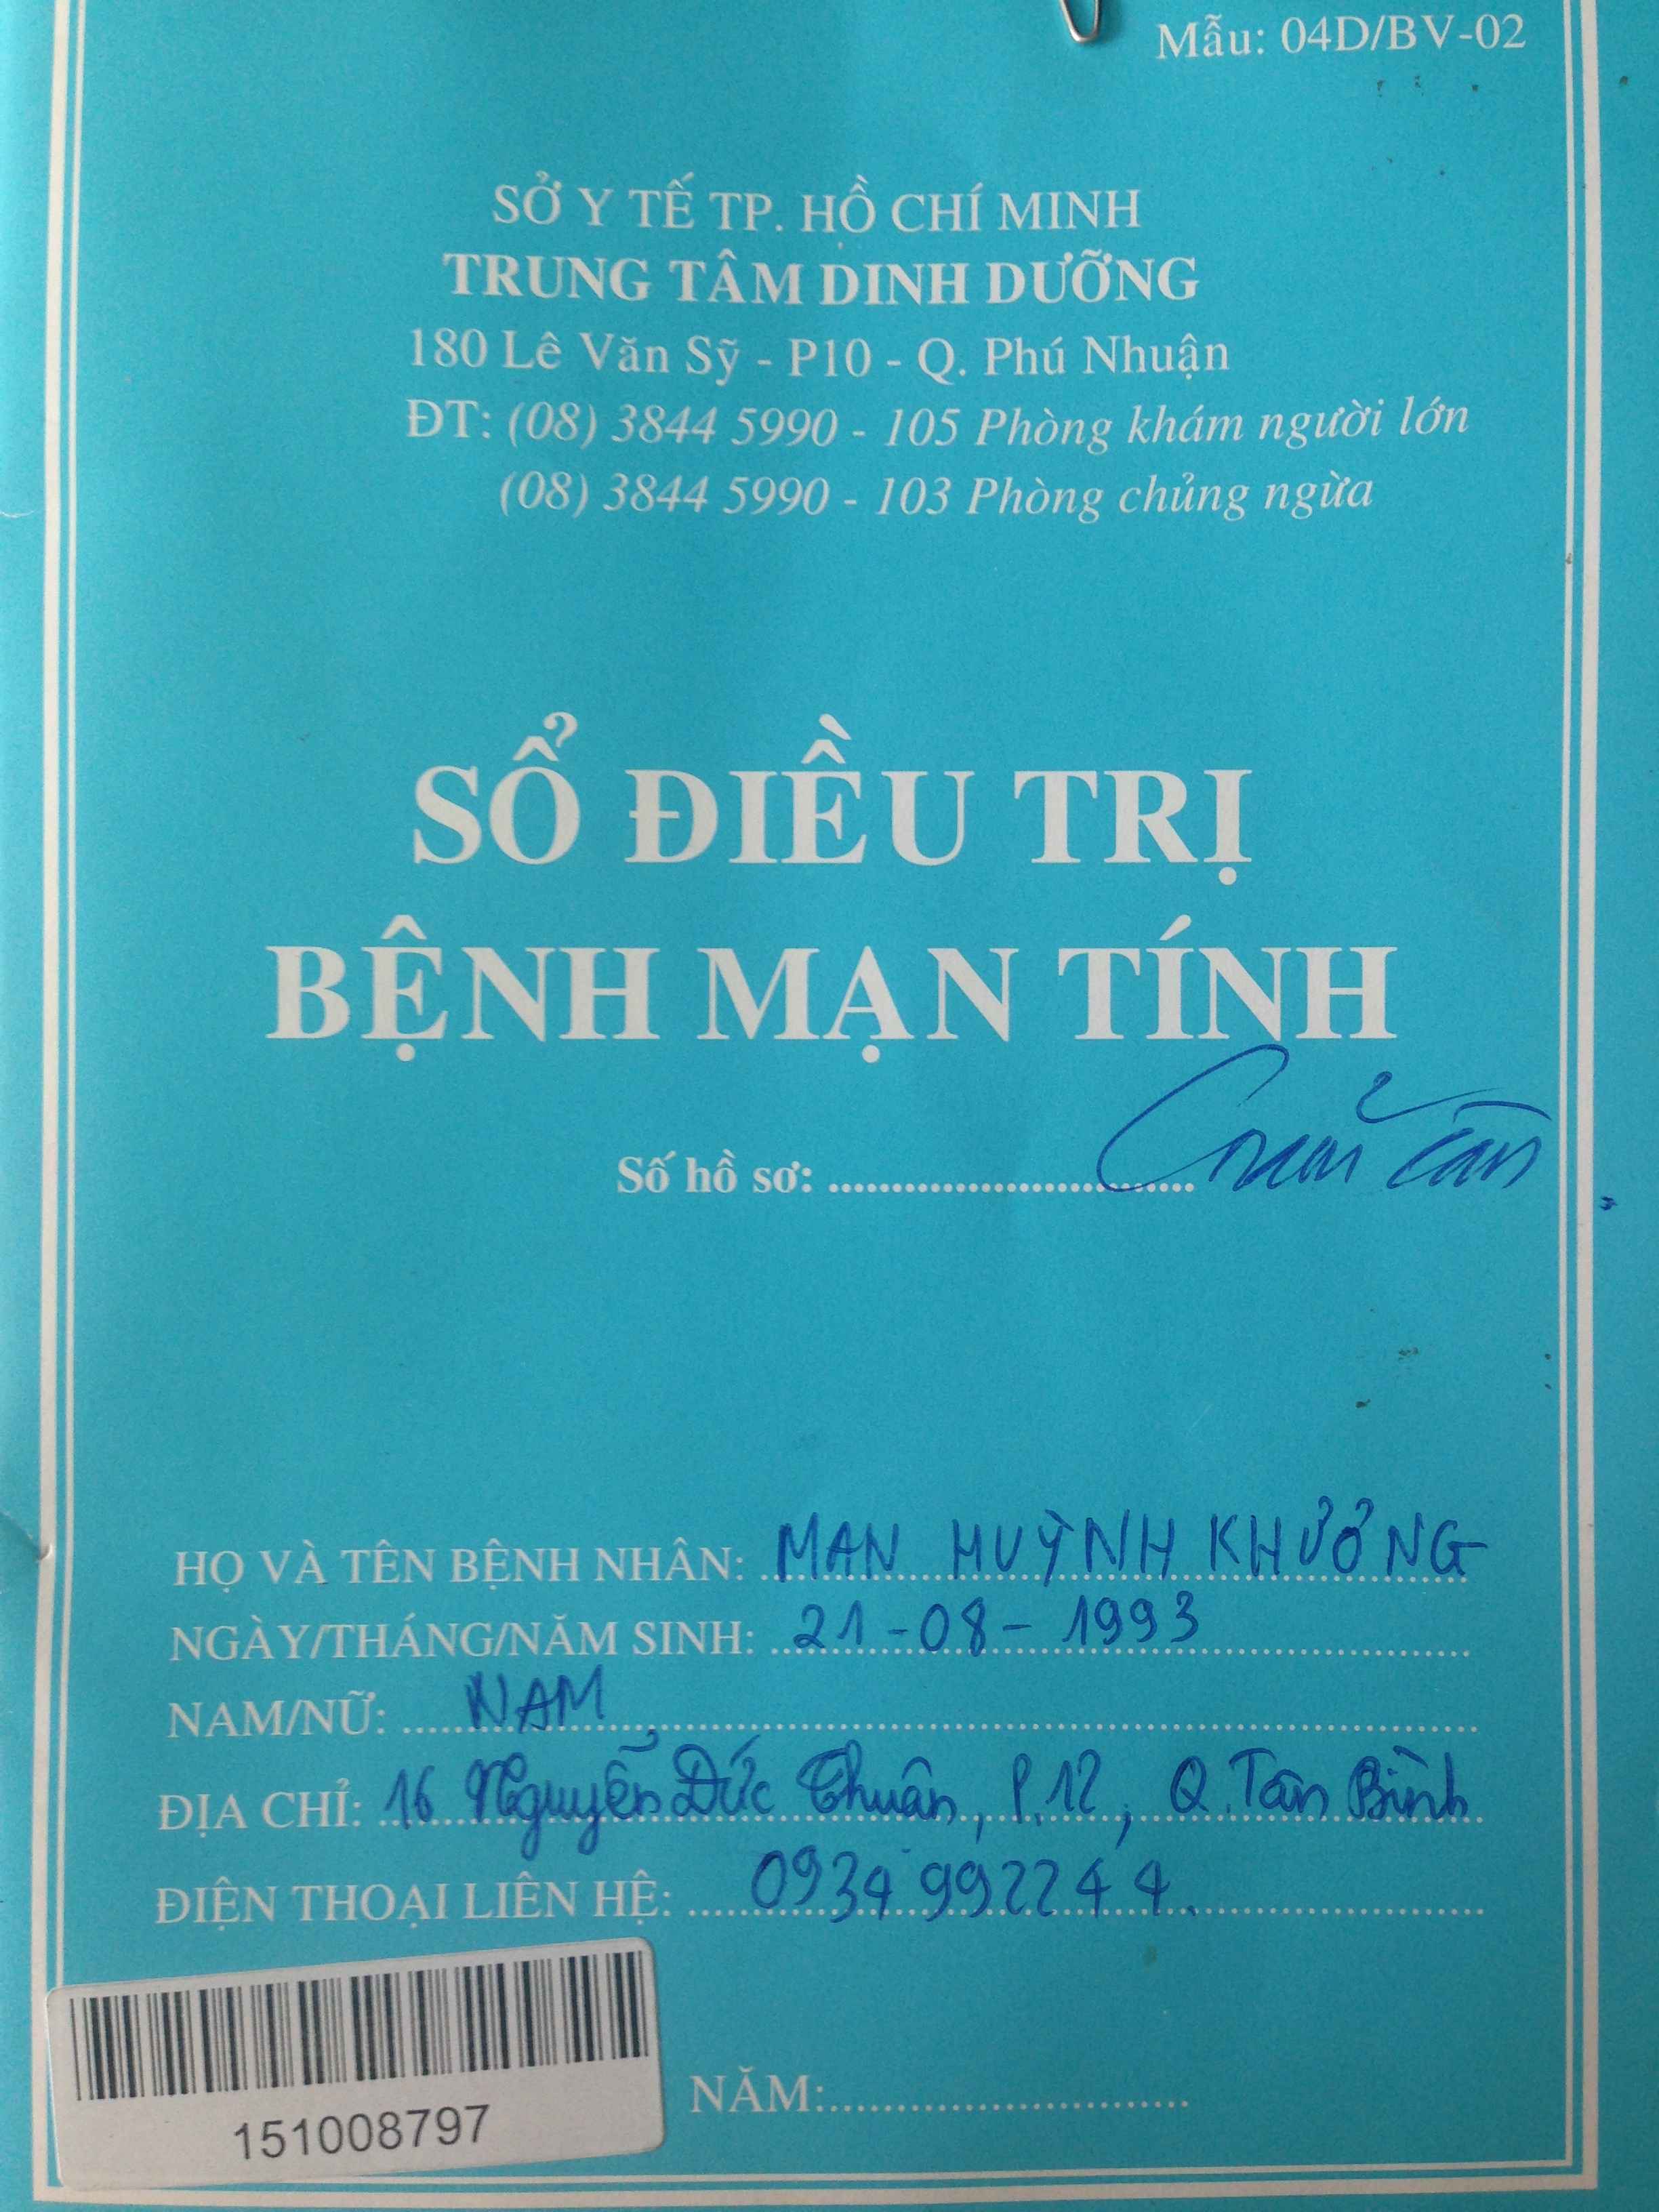 Mẫu: 04D/BV-02
SỞ Y TẾ TP. HỒ CHÍ MINH
TRUNG TÂM DINH DƯỠNG
180 Lê Văn Sỹ - P10 - Q. Phú Nhuận
ĐT: (08) 3844 5990 - 105 Phòng khám người lớn
(08) 3844 5990 - 103 Phòng chủng ngừa
SỔ ĐIỀU TRỊ
BỆNH MẠN TÍNH
Số hồ sơ: ............................
HỌ VÀ TÊN BỆNH NHÂN: MAN HUỲNH KHƯƠNG
NGÀY/THÁNG/NĂM SINH: 21-08-1993
NAM/NỮ: NAM
ĐỊA CHỈ: 16 Nguyễn Đức Thuận, P.12, Q. Tân Bình
ĐIỆN THOẠI LIÊN HỆ: 0934992244.
151008797
NĂM:............................